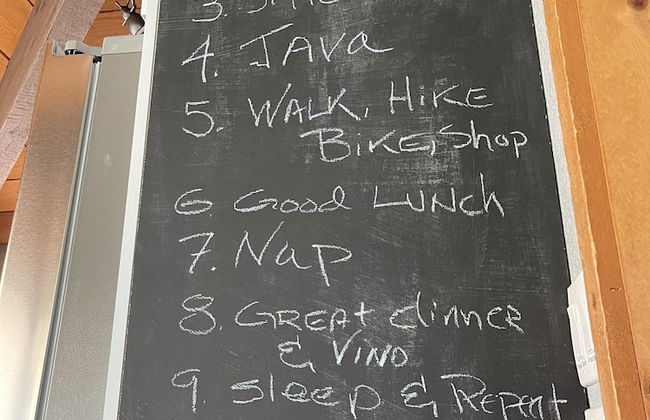 3.
4. JAVa
5. WALK, HiKE
BiKE, Shop
6. Good LUNCh
7. Nap
8. GREAt dinner
& VINO
9. Sleep & Repeat